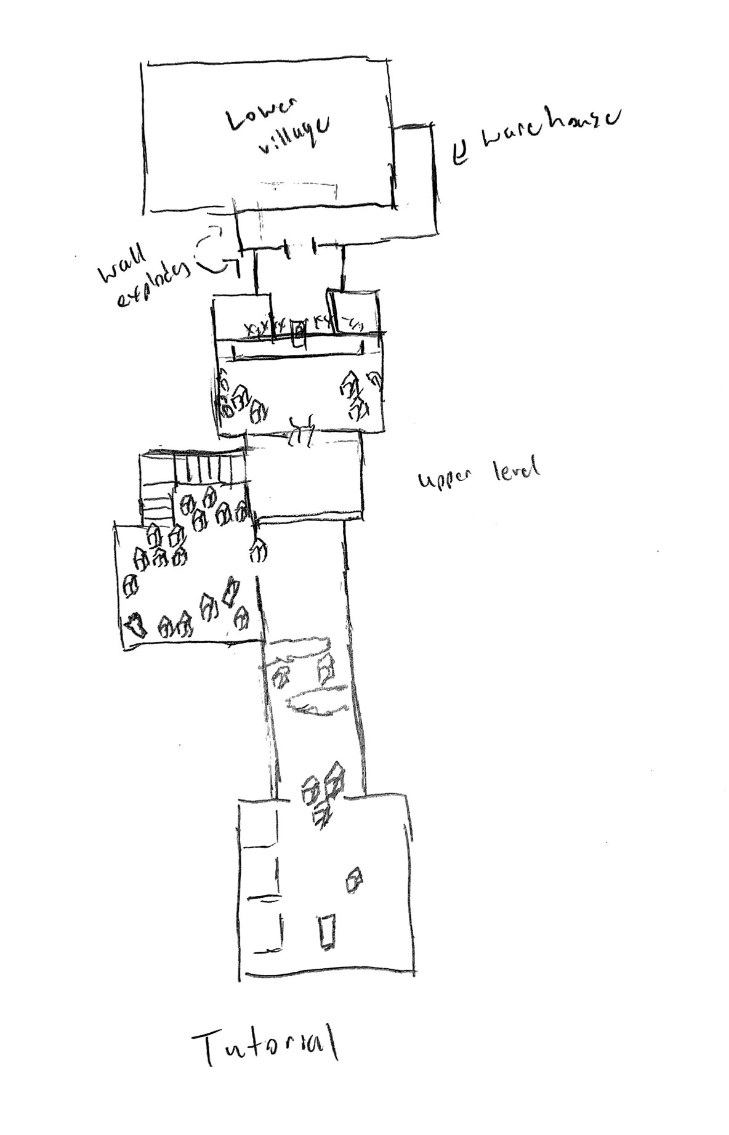 Lower
village
warehouse
wall
explodes
upper level
Tutorial